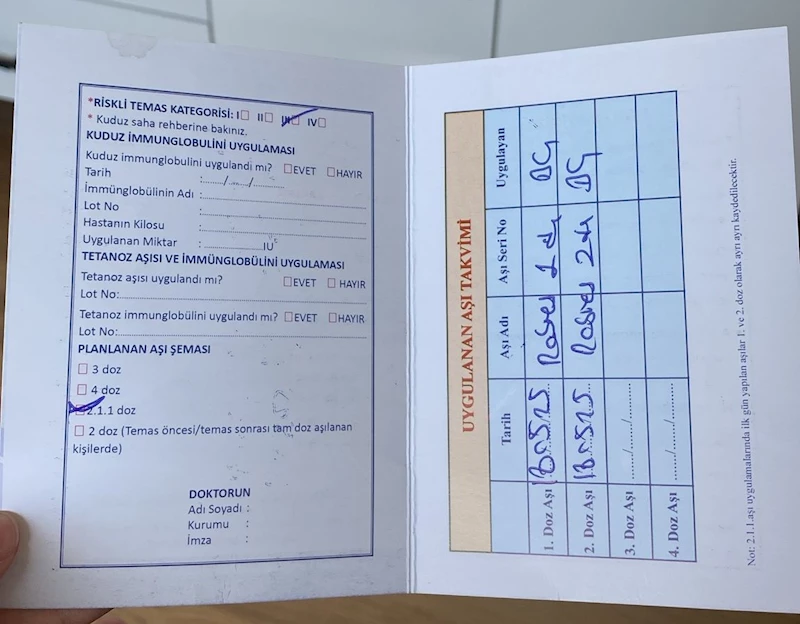 *RİSKLİ TEMAS KATEGORİSİ: I□ II□ III□ IV□
* Kuduz saha rehberine bakınız.
KUDUZ İMMUNGLOBULİNİ UYGULAMASI
Kuduz immunglobulini uygulandi mı? □EVET □HAYIR
Tarih :......./......./...........
İmmünglobülinin Adı :
Lot No :
Hastanın Kilosu :
Uygulanan Miktar :....................IU
TETANOZ AŞISI VE İMMÜNGLOBÜLİNİ UYGULAMASI
Tetanoz aşısı uygulandı mı? □EVET □ HAYIR
Lot No:
Tetanoz immunglobulini uygulandı mı? □EVET □HAYIR
Lot No:
PLANLANAN AŞI ŞEMASI
□ 3 doz
□ 4 doz
□ 2.1.1 doz
□ 2 doz (Temas öncesi/temas sonrası tam doz aşılanan
kişilerde)
DOKTORUN
Adı Soyadı :
Kurumu :
İmza :
UYGULANAN AŞI TAKVİMİ
Tarih Aşı Adı Aşı Seri No Uygulayan
1. Doz Aşı
2. Doz Aşı
3. Doz Aşı ....../....../.........
4. Doz Aşı ....../....../.........
Not: 2.1.1.aşı uygulamalarında ilk gün yapılan aşılar 1. ve 2. doz olarak ayrı ayrı kaydedilecektir.